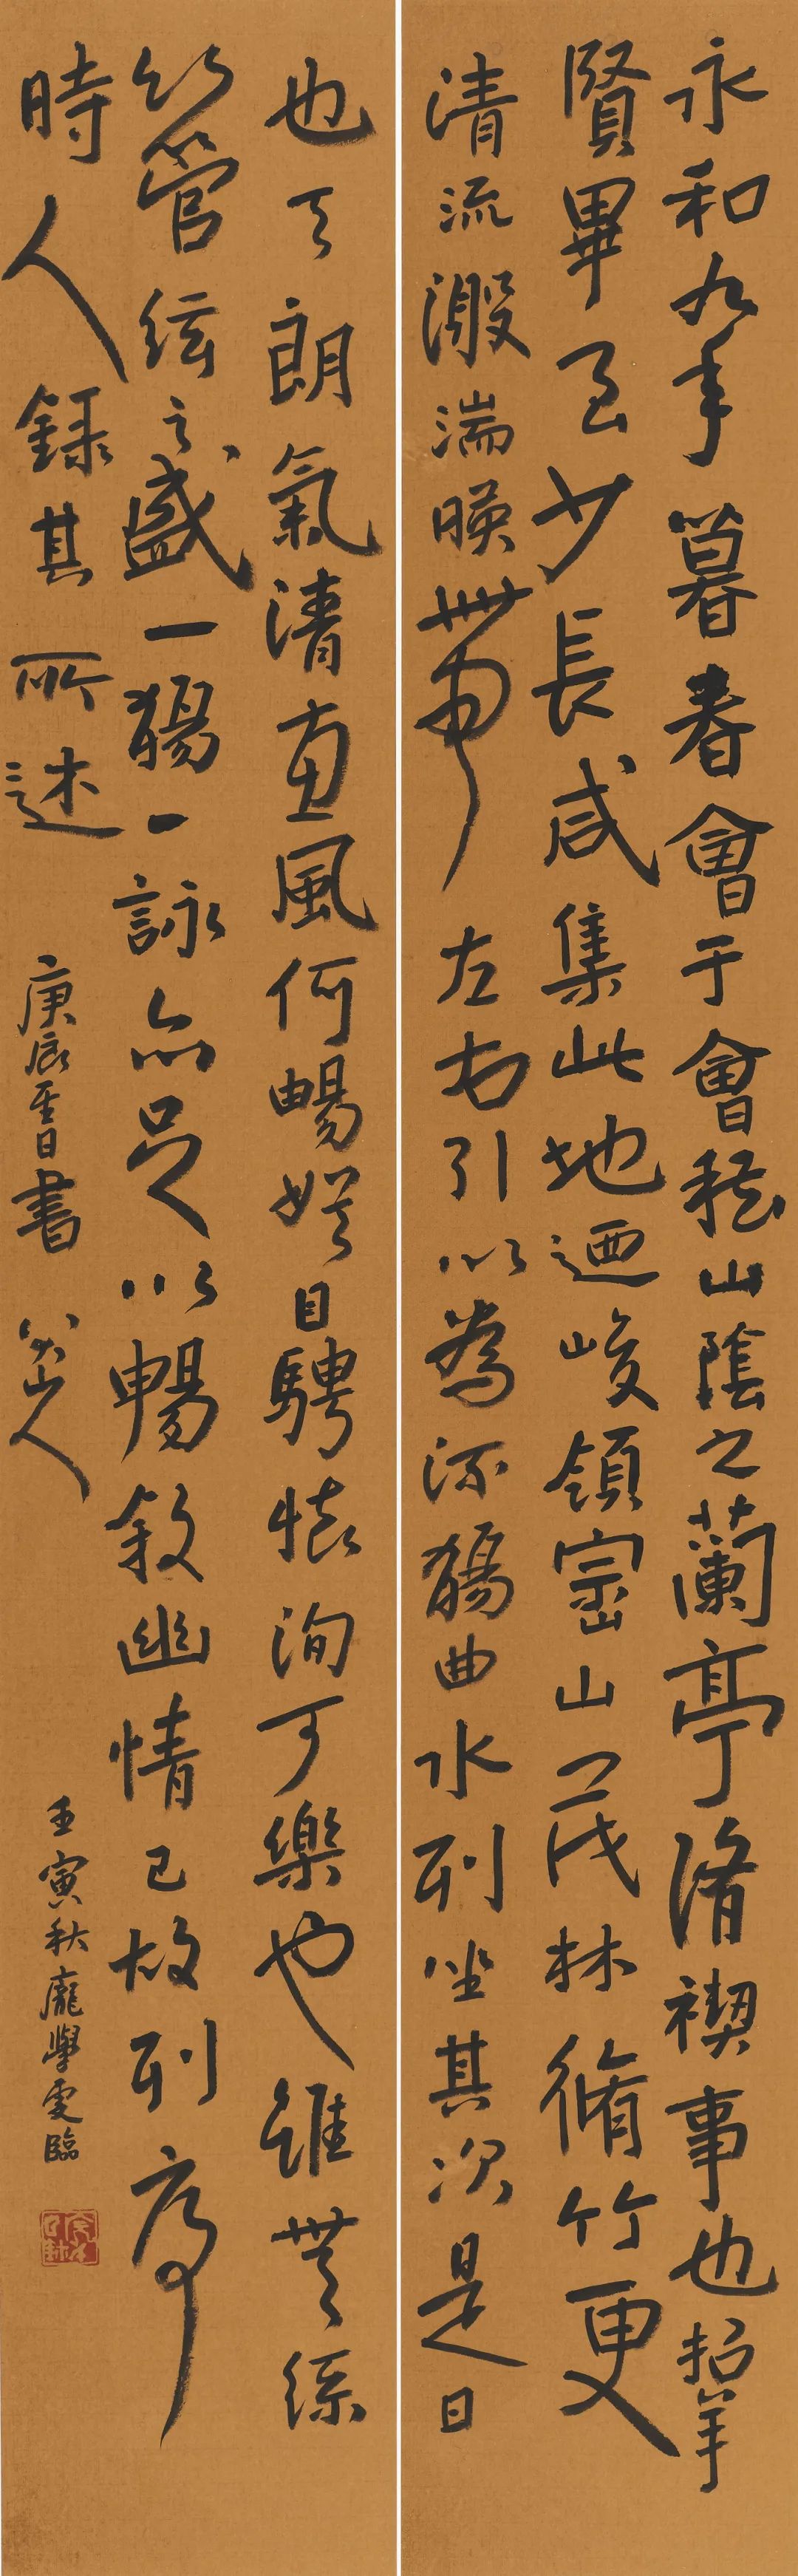 永和九年暮春會于會稽山陰之蘭亭脩禊事也招羣
賢畢至少長咸集此地迺峻領崈山茂林脩竹更
清流激湍暎帶左右引以為流觴曲水列坐其次是日
也天朗氣清惠風何暢娛目騁懷洵可樂也雖無絲
竹管弦之盛一觴一詠亦足以暢敘幽情已故列序
時人錄其所述 庚辰至日書 八大山人
壬寅秋龐學雯臨